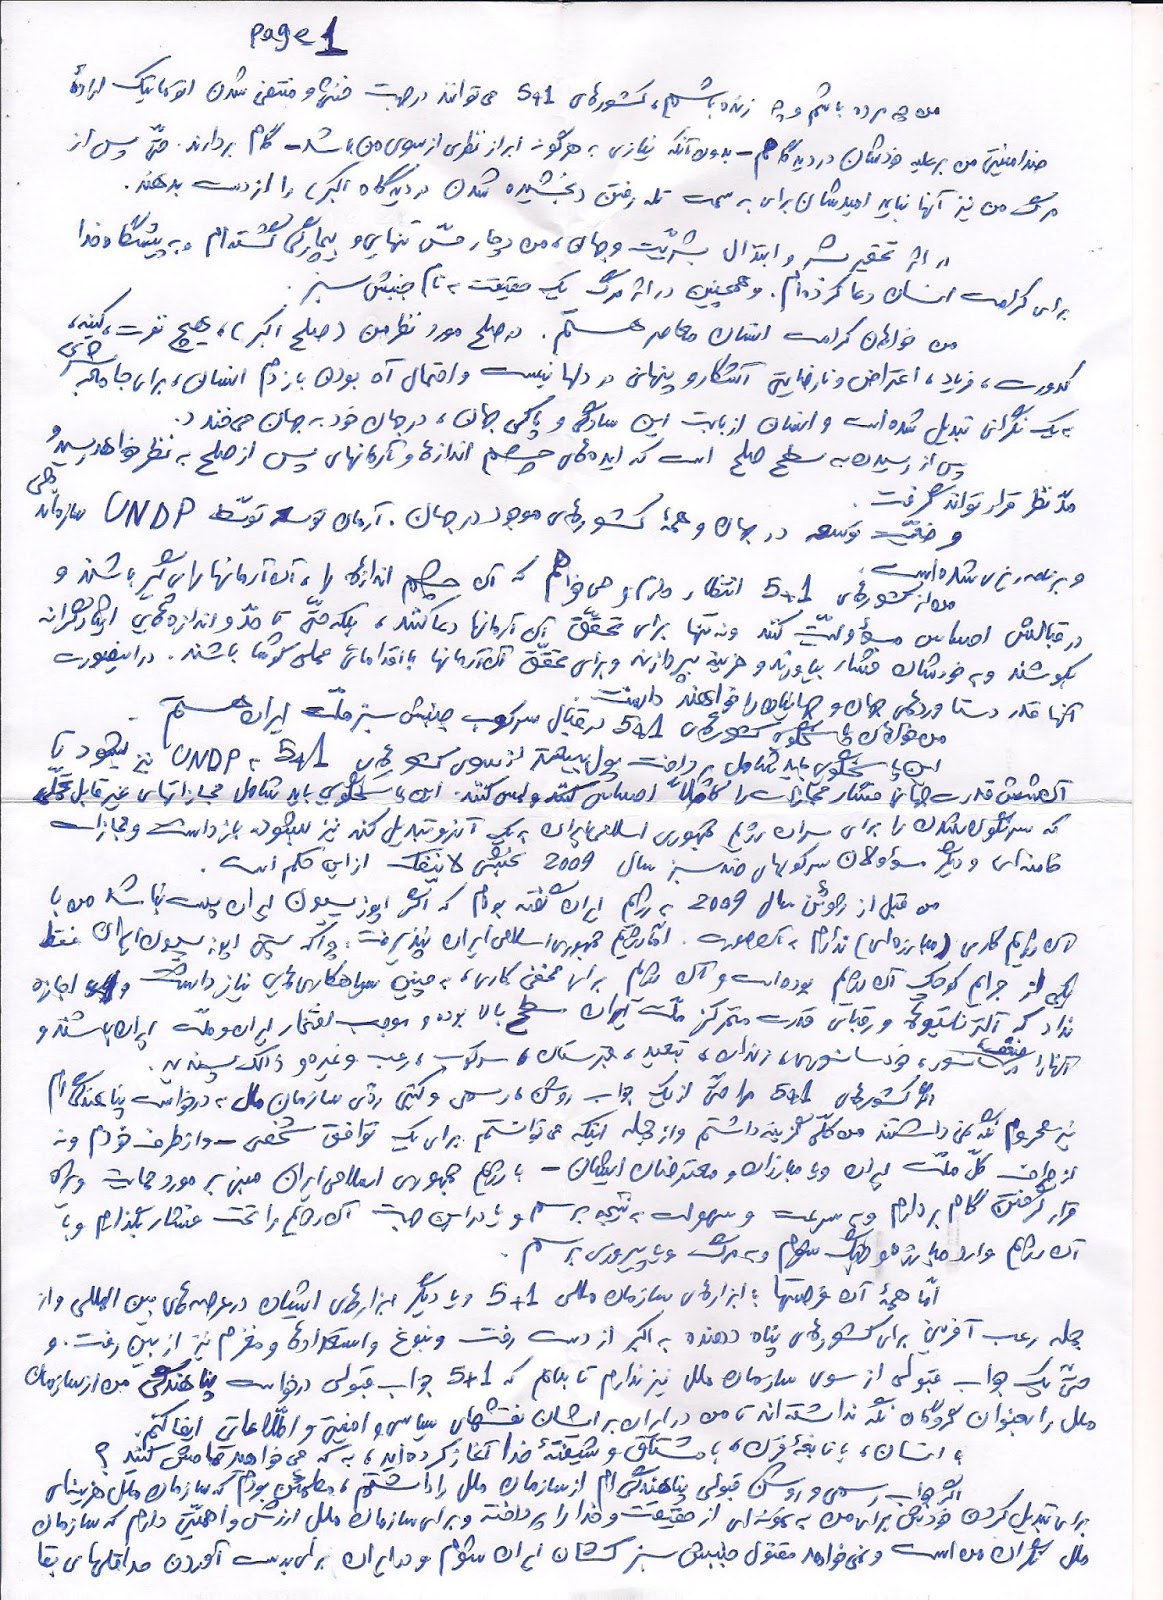 page 1
من چه مرده باشم و چه زنده باشم، کشورهای 5+1 می توانند در جهت خنثی و منتفی شدن اتوماتیک ارادهٔ
ضد امنیتی من بر علیه خودشان در دیدگاهم – بدون آنکه نیازی به هرگونه ابراز نظری از سوی من باشد – گام بردارند. حتّی پس از
مرگ من نیز آنها نباید امیدشان برای به سمت تله رفتن و بخشیده شدن در دیدگاه اکبر را از دست بدهند.
در اثر تحقیر بشر و ابتدال بشریّت و جهان، من دچار حسّ تنهایی و بیچارگی گشته ام و به پیشگاه خدا
برای کرامت انسان دعا کرده ام. و همچنین در اثر مرگ یک حقیقت به نام جنبش سبز.
من خواهان کرامت انسان معاصر هستم. در صلح مورد نظر من (صلح اکبر)، هیچ نفرت، کینه،
کدورت، فریاد، اعتراض و نارضایتی آشکار و پنهانی در دلها نیست و احتمال آه بودن بازدم انسان، برای جامعهٔ بشری
به یک نگرانی تبدیل شده است و انسان از بابت این سادگی و پاکی جهان، در جهان خود به جهان می خندد.
پس از رسیدن به سطح صلح است که ایده های چشم اندازها و آرمانهای پس از صلح به نظر خواهد رسید و
مدّ نظر قرار تواند گرفت.
وضعیّت توسعه در جهان و همهٔ کشورهای موجود در جهان. آرمان توسعه توسّط UNDP سازماندهی
و برنامه ریزی شده است.
من از کشورهای 5+1 انتظار دارم و می خواهم که آن چشم اندازها را، آن آرمانها را پی گیر باشند و
در قبالش احساس مسؤولیّت کنند و نه تنها برای تحقّق آن آرمانها دعا کنند، بلکه حتّی تا حدّ و اندازه های ایثارگرانه
بکوشند و به خودشان فشار بیاورند و هزینه بپردازند و برای تحقّق آن آرمانها با اقداماتی عملی کوشا باشند. در اینصورت
آنها قدر دستاوردهای جهان و جهانیان را خواهند دانست.
من خواهان پاسخگویی کشورهای 5+1 در قبال سرکوب جنبش سبز ملّت ایران هستم.
این پاسخگویی باید شامل پرداخت پول بیشتر از سوی کشورهای 5+1 به UNDP نیز بشود تا
آن شش قدرت جهانی فشار مجازات را کاملاً احساس کنند و لمس کنند. این پاسخگویی باید شامل مجازاتهای غیر قابل تحمّلی
که سرنگون شدن را برای سران رژیم جمهوری اسلامی ایران به یک آرزو تبدیل کند نیز بشود. بازداشت و مجازات
خامنه ای و دیگر مسؤولان سرکوبهای ضدّ سبز سال 2009 بخشی لاینفک از این حکم است.
من قبل از ژوئن سال 2009 به رژیم ایران گفته بودم که اگر اپوزیسیون ایران پست نباشد من با
آن رژیم کاری (مبارزه ای) ندارم به آن صورت. امّا رژیم جمهوری اسلامی ایران نپذیرفت، چرا که پستی اپوزیسیون ایران فقط
یکی از جرایم کوچک آن رژیم بوده است و آن رژیم برای مخفی کاری، به چنین سیاهکاری هایی نیاز داشت و اجازه
نداد که آلترناتیوها و رقبای قدرت متمرکز ملّت ایران سطح بالا بوده و موجب افتخار ایران و ملّت ایران باشند و
آنها را سانسور، خودسانسوری، زندان، تبعید، قبرستان، سرکوب، رعب و غیره و ذالک پسندید.
اگر کشورهای 5+1 مرا حتّی از یک جواب روشن، رسمی و کتبی ردّی سازمان ملل به درخواست پناهندگی ام
نیز محروم نگه نمی داشتند من کلّی گزینه داشتم و از جمله اینکه می توانستم برای یک توافق شخصی – و از طرف خودم و نه
از طرف کلّ ملّت ایران و یا مبارزان و معترضان ایشان – با رژیم جمهوری اسلامی ایران مبنی بر مورد حمایت ویژه
قرار گرفتن گام بردارم و به سرعت و سهولت به نتیجه برسم و یا در این جهت آن رژیم را تحت فشار بگذارم و با
آن رژیم وارد مبارزه و جنگ شوم و به مرگ و یا پیروزی برسم.
امّا همهٔ آن فرصتها با ابزارهای سازمان مللی 5+1 و یا دیگر ابزارهای ایشان در عرصه های بین المللی و از
جمله رعب آفرینی برای کشورهای پناه دهنده به اکبر از دست رفت و نبوغ و استعدادها و مغزم نیز از بین رفت. و
حتّی یک جواب قبولی از سوی سازمان ملل نیز ندارم تا بدانم که 5+1 جواب قبولی درخواست پناهندگی من از سازمان
ملل را بعنوان گروگان نگه نداشته اند تا من در ایران برایشان نقشهای سیاسی و امنیتی و اطّلاعاتی ایفا کنم.
با انسان، با نابغهٔ قرن، با مشتاق و شیفتهٔ خدا آغاز کرده اید، به که می خواهید تمامش کنید؟
اگر جواب رسمی و روشن قبولی پناهندگی ام از سازمان ملل را داشتم، مطمئن بودم که سازمان ملل هزینهای
برای تبدیل کردن خودش برای من به نمونه ای از حقیقت و خدا را پرداخته و برای سازمان ملل ارزش و اهمّیّتی دارم که سازمان
ملل نگران من است و نمی خواهد مقتول جنبش سبز کشان ایران شوم و در ایران برای بدست آوردن حداقلهای بقا